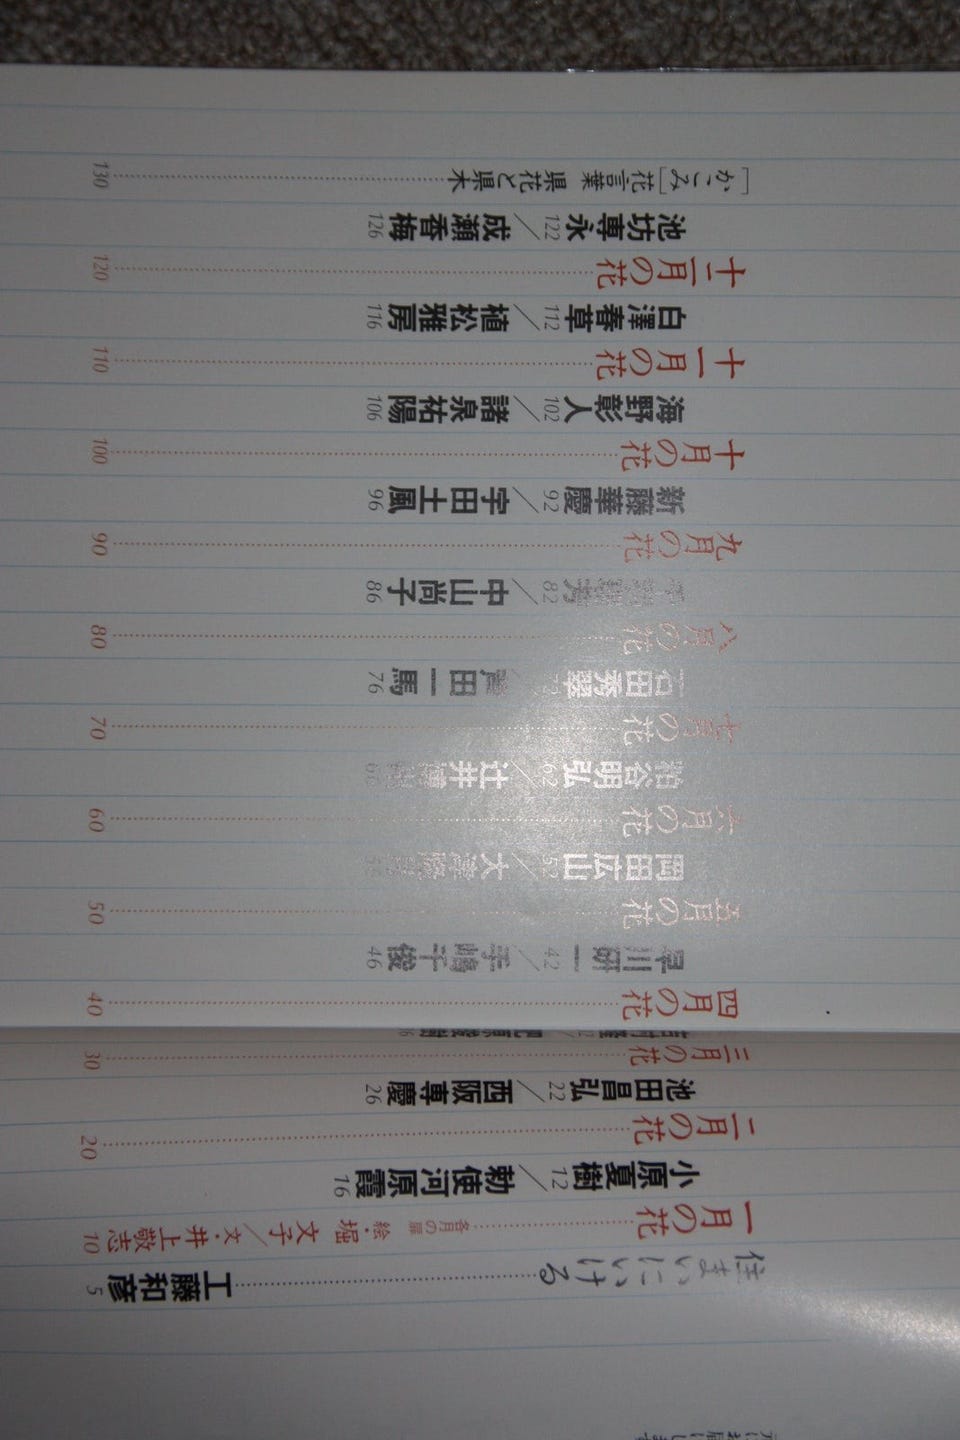 住まいにいける……工藤和彦 5
一月の花 各月の扉 絵・堀 文子／文・井上敬志 10
小原夏樹 12／勅使河原霞 16
二月の花 20
池田昌弘 22／西阪専慶 26
三月の花 30
四月の花 40
早川研一 42／手嶋千俊 46
五月の花 50
岡田広山 52／大津
六月の花 60
粕谷明弘 62／辻井
七月の花 70
石田秀翠／田一馬 76
八月の花 80
82／中山尚子 86
九月の花 90
新藤華慶 92／宇田土風 96
十月の花 100
海野彰人 102／諸泉祐陽 106
十一月の花 110
白澤春草 112／植松雅房 116
十二月の花 120
池坊専永 122／成瀬香梅 126
［かこみ］花言葉 県花と県木 130